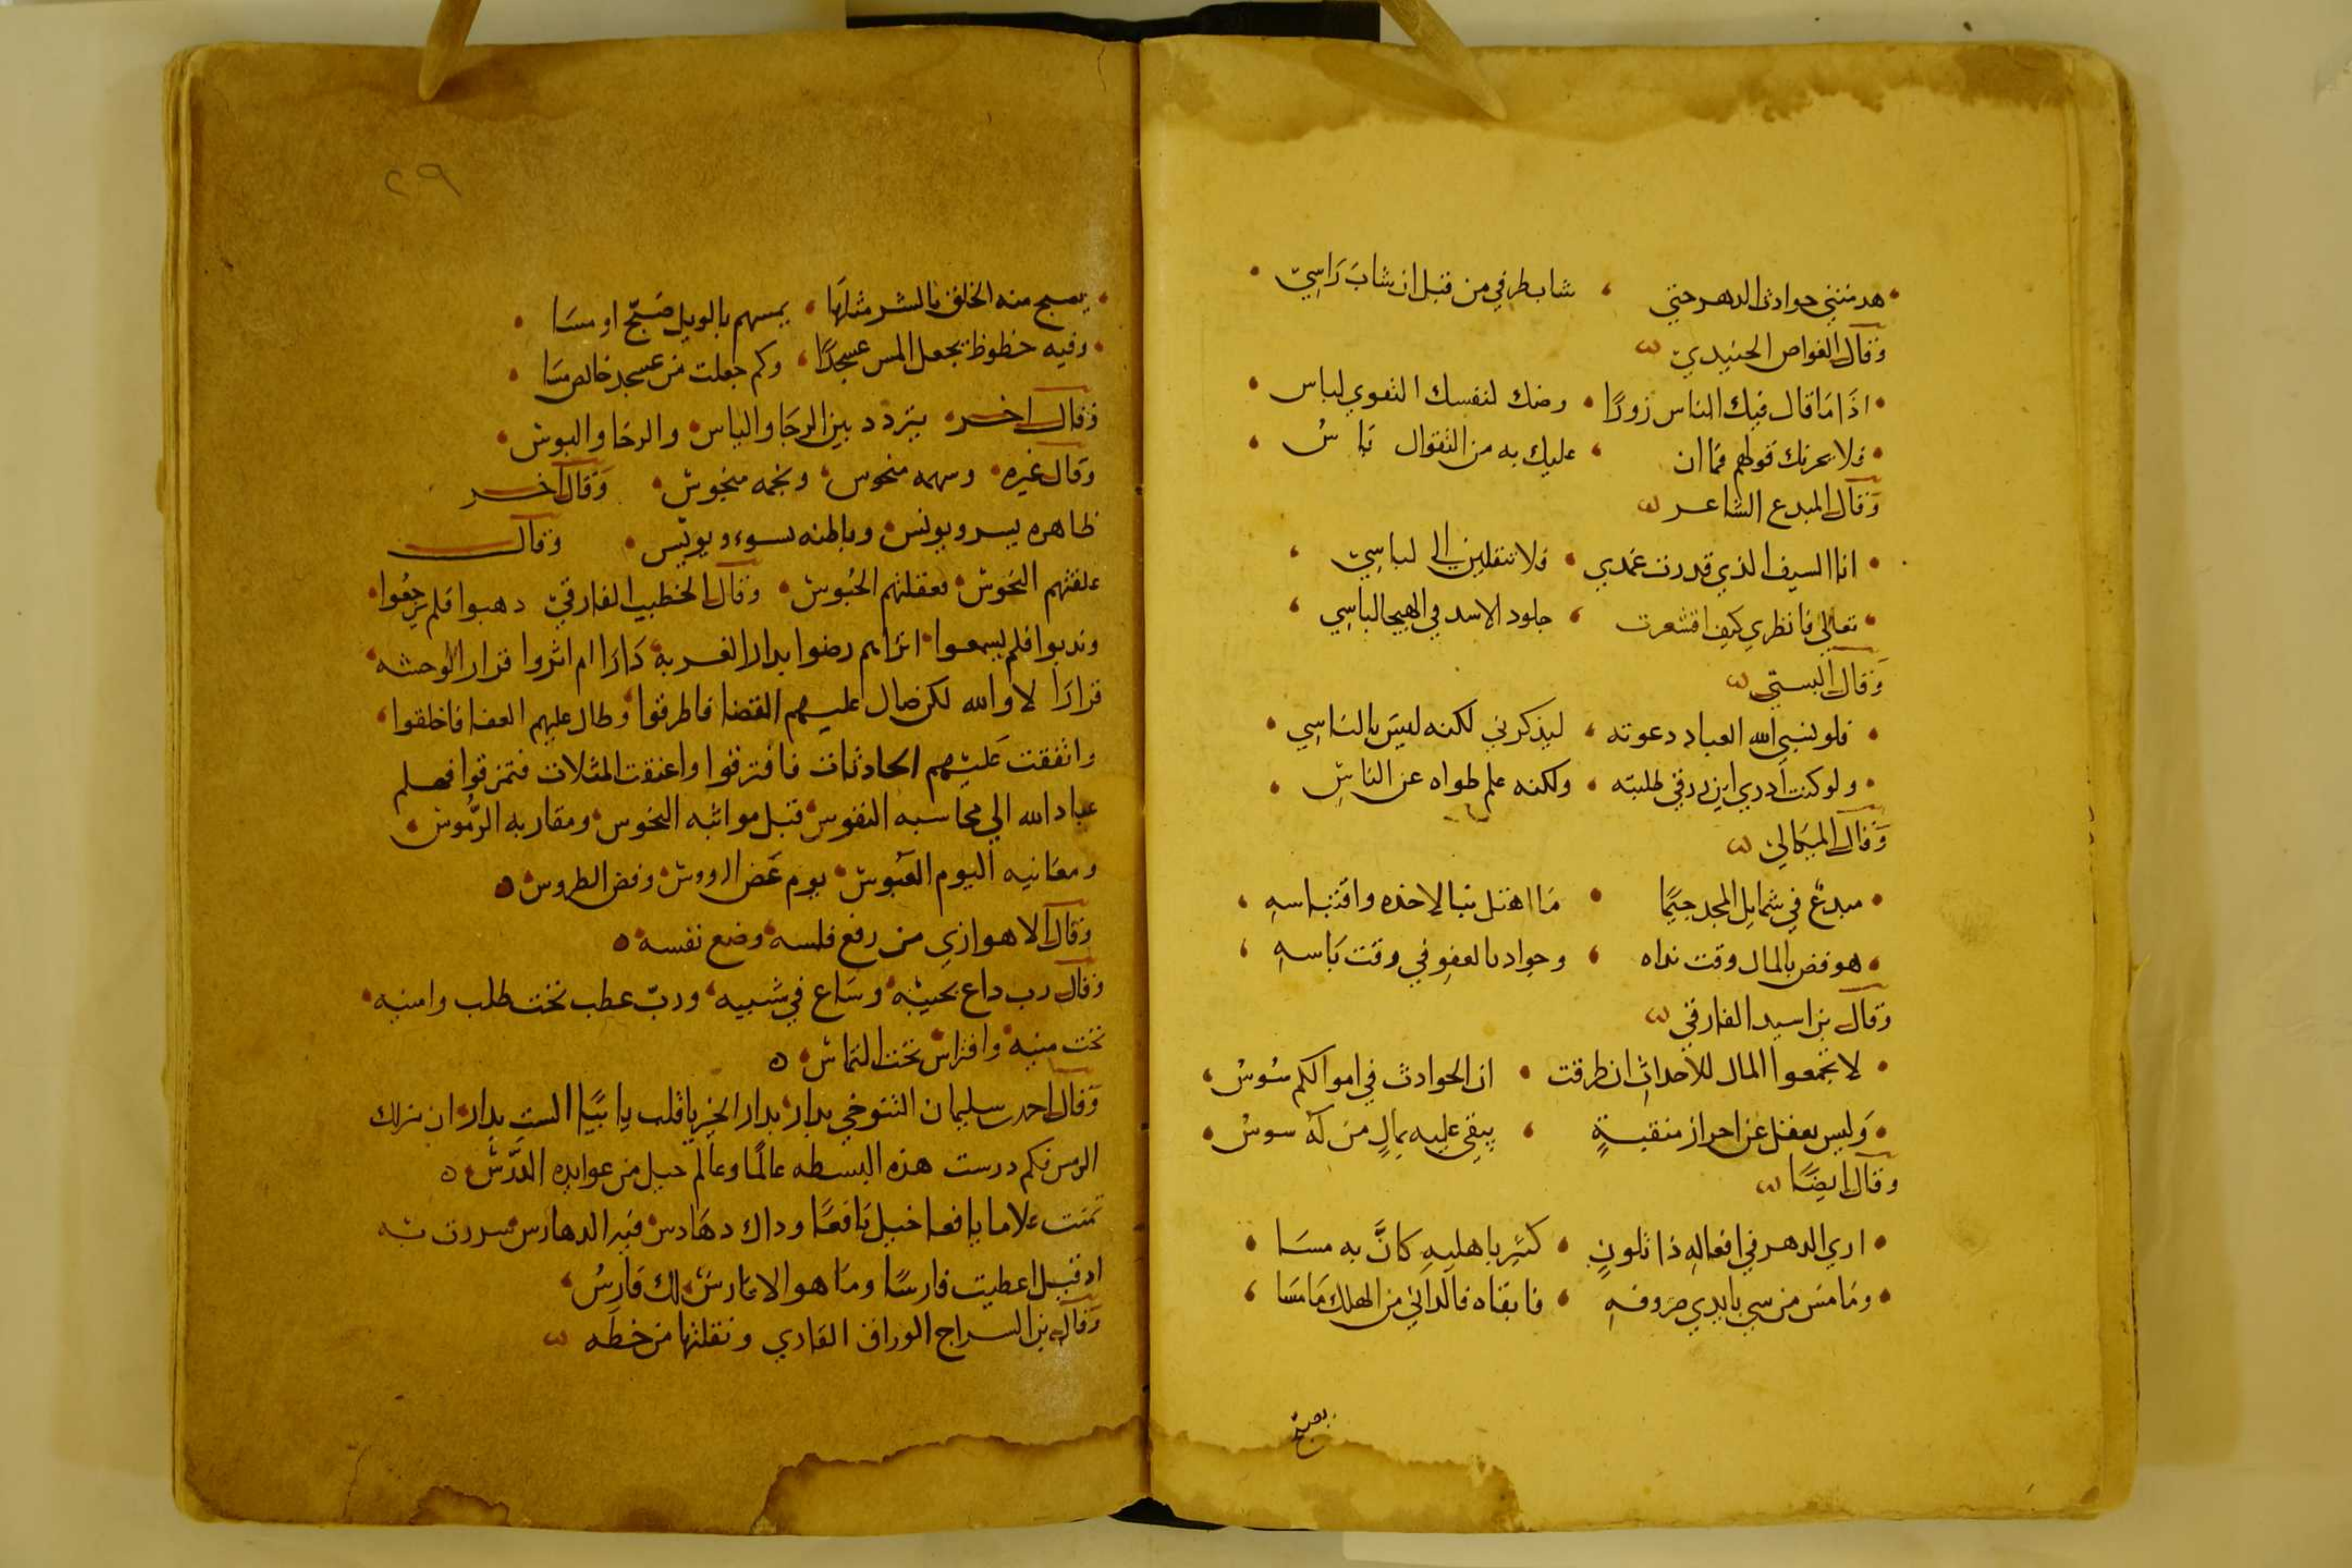 هدمتني حوادث الدهر حتي ، شاب طرفي من قبل ان شاب رَاسِيّ
وَقال الغواص الجنيدي
اذَا مَا قال فيك الناس زورًا • وضك لنفسك التقوي لباس
فلا يحزنك قولهم فمَا ان ، عليك به من التقوال بَاسُ
وَقال المبدع الشاعر
انا السيف الذي قدرت غمدي • فلا تنقلين الى لباسِي
تعالي فانظري كيف اقشعرت ، جلود الاسد في الهيجا لباسِي
وَقال البستي
فلو نسي الله العباد دعوته ، ليذكرني لكنه ليسَ بالناسِي
ولو كنت ادري اين رزقي طلبته ، ولكنه علم طواه عن الناسِ
وَقال الميكالي
مبدعٌ في شمايل المجد خيمًا • مَا اهتدينا لاخذه واقتباسهِ
هو فض بالمال وقت نداه ، وجواد بالعفو في وقت بَاسهِ
وَقال بن اسيد الفارقي
لا تجمعوا المال للأحداثِ ان طرقت • ان الحوادث في اموالكم سُوسُ
وَليس يعقل عن احراز منقبةٍ ، يبقي عليه بمالٍ من لَه سوسُ
وَقال ايضًا
اري الدهر في افعالهِ ذا تلونٍ • كثير باهليهِ كانَّ به مسَا
ومَا مسَ من سي بايدي صروفهِ ، فابقاه فالداني من الهلك مَا مسَا
يصبح
٢٩
يصبح منه الخلق بالشر مثلهَا • يمسهم بالويل صَبّح او مسَا
وفيه خطوظ يجعل المس عسجدًا ، وكم جعلت من عسجد خالص مسَا
وَقال اخر • يتردد بين الرجَا والباس • والرخا والبوس
وَقال غيره • وسهمه منحوس ، ونجمه منحوس • وَقال اخر
ظاهره يسر ويونس • وباطنه يسوء ويوئس • وَقال
علقتهم النحوس • فعقلتهم الحُبوس • وَقال الخطيب الفارقي دهبوا فلم يرجعُوا
وندبوا فلم يسمعوا • اتراهم رضوا بدار الغربة دَارَا ام اثروا قرار الوحشه
قرارَا لا والله لكن صال عليهم القضا فاطرقوا وطال عليهم العفا فاخلقوا
واتفقت عليهم الحادثات فافترقوا واعنقت المثلات فتمزقوا فهلم
عباد الله الي محاسبه النفوس قبل مواثبه النحوس ومقاربه الرُّموس
ومعَانيه اليوم العَبُوس يوم عَض الرووس وفض الطروس
وَقال الاهوازي من رفع فلسه وضع نفسه
وَقال رب داع بخيبَة وسَاع في شيبه وربّ عطب تحت طلب وامنيه
تحت منيه وافتراس تحت التماس
وَقال احمد سليمان التنوخي بدار بدار الخير يا قلب يا بيًّا الست بدار ان منزلك
الرمس فكم درست هذه البسطه عالمًا وعالم جيل من عوايده الدَّرس
تمنت غلاما يافعا خيل نَافعًا وداك دهَادس فيه الدهارس سررت به
اد قيل اعطيت فارسًا ومَا هو الا فارس لك فَارسُ
وَقال بن السراج الوراق القاري ونقلتها من خطَه